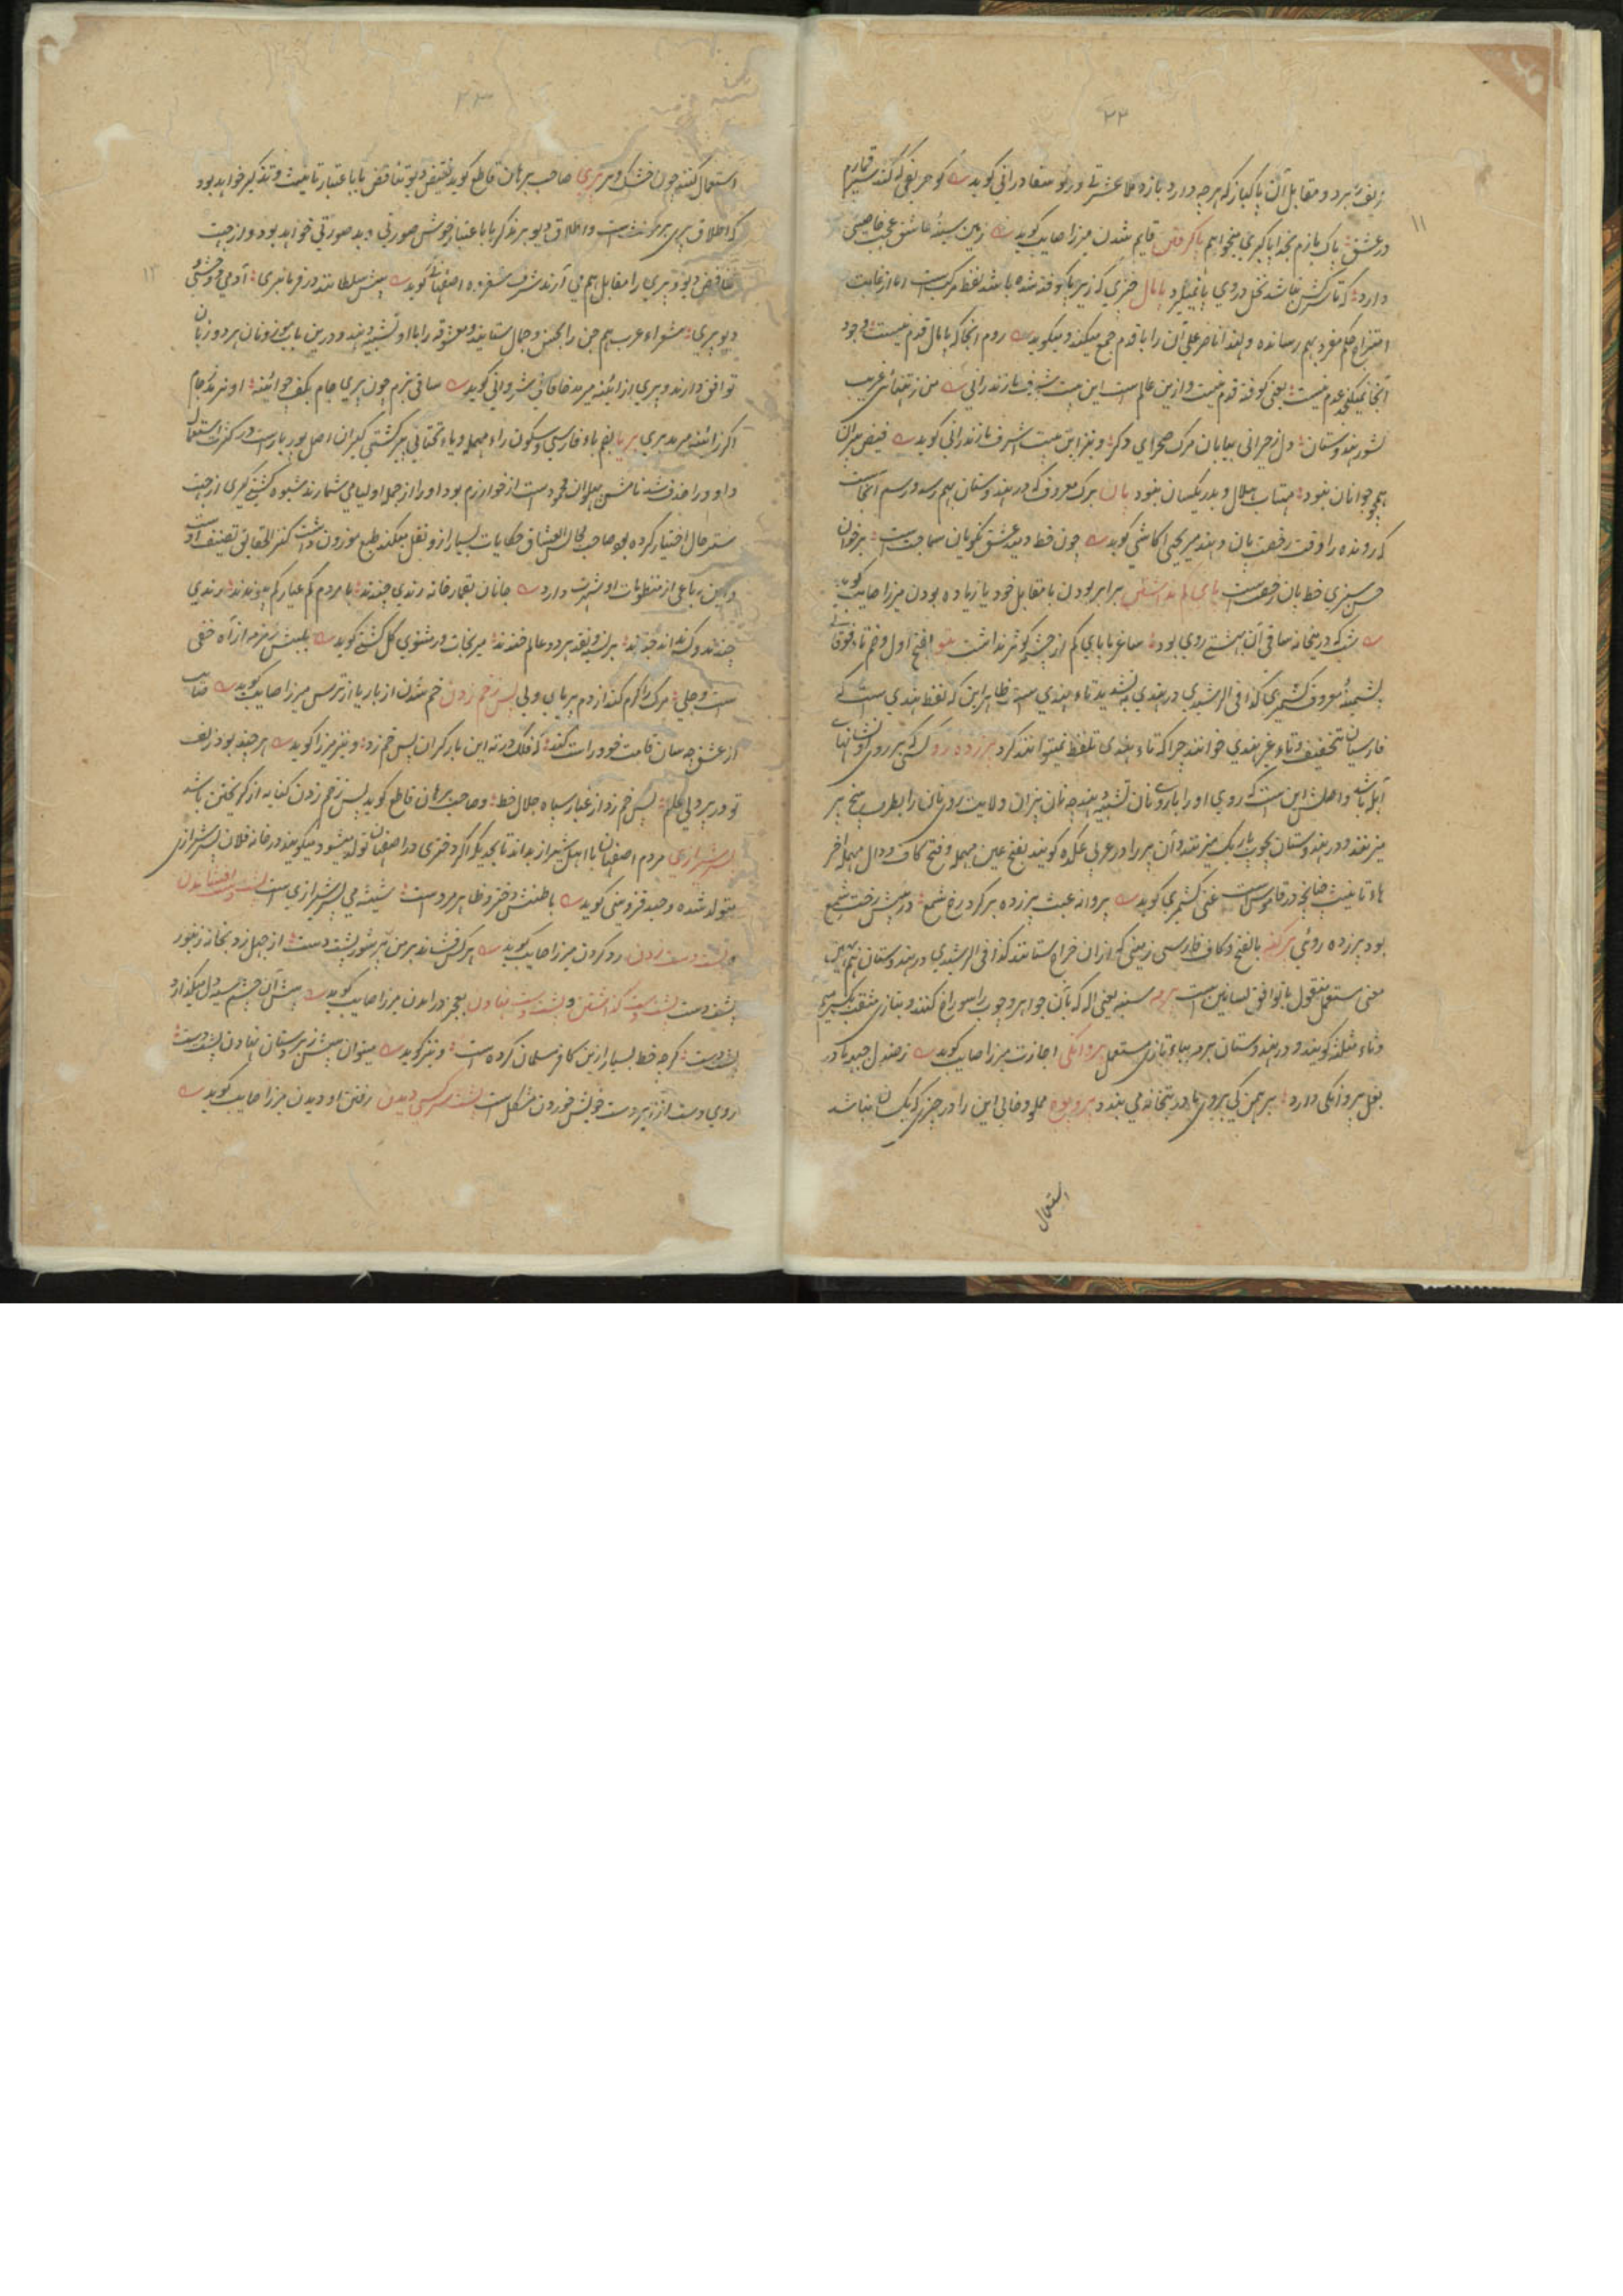 ۲۲
۱۱
در عشق پاک بازم بخدا پاکبری میخواهم پا گرفتن قایم شدن میرزا صایب گوید زمین سینهٔ عاشق عجب خاصیتی
دارد که تا سرکش نباشد نخل در وی پا نمیگیرد پامال چیزی که زیر پا کوفته شده باشد لفظ مرکب است اما از غایت
امتزاج حکم مفرد بهم رسانده و لهذا ناصر علی آن را با قدم جمع میکند و میگوید روم انجا که پامال قدم نیست وجود
انجا نمیگنجد عدم نیست یعنی کوفته قدم نیست و ازین عالم است این بیت شرف مازندرانی من ز تنهائی غریب
کشور هندوستان دل ز حیرانی بیابان مرک صحرای دکر و نیز این بیت اشرف مازندرانی گوید فیض پیران
همچو جوانان نبود مهتاب هلال و بدر یکسان نبود پان برک معروف که در هندوستان بهم رسد و رسم انجاست
که رونده را وقت رخصت پان دهند میر یحیی کاشی گوید چون خط دمید عشق نکویان سماجت است بر خوان
حسن سبزی خط پان رخصت است پای کم نداشتن برابر بودن با مقابل خود یا زیاده بودن میرزا صایب گوید
شب که در میخانه ساقی آن بهشتی روی بود ساغر ما پای کم از چشمه کوثر نداشت پتو بفتح اول و ضم تاء فوقانی
پشمینهٔ معروف کشمیری کذا فی الرشیدی در هندی به تشدید تاء هندی است ظاهر این که لفظ هندی است که
فارسیان بتخفیف و تاء غیر هندی خوانند چرا که تاء هندی تلفظ نمیتوانند کرد پر زده رو کسی که بر روی او نشانهای
آبله باشد و اصلش این است که روی او را با روی نان تشبیه دهند چه نان پزان ولایت روی نان را بطرف بیخ پر
میزنند و در هندوستان بچوب باریک میزنند و آن پر را در عربی عکده گویند بفتح عین مهمله و فتح کاف و دال مهمله آخر
هاء تانیث چنانچه در قاموس است غنی کشمیری گوید پروانه عبث پر زده بر گرد رخ شمع در پیش رخت شمع
بود پر زده روئی پرگنه بالفتح و کاف فارسی زمینی که از ان خراج ستانند کذا فی الرشیدی در هندوستان هم بهمین
معنی مستعمل منقول یا توافق لسانین است پرمه سنبه یعنی آله که بآن جواهر و چوب را سوراخ کنند و بتازی مثقب بکسر میم
و ثاء مثلثه گویند و در هندوستان برمه بباء تازی مستعمل پروانگی اجازت میرزا صایب گوید ز صندل جبه ما در
بغل پروانگی دارد برهمن کی بروی ما در بتخانه می بندد پر و بوده مملو و خالی این را در چیزی که یکسان نباشد
استعمال
۲۳
۱۲
استعمال کنند چون خشک و تر پری صاحب برهان قاطع گوید نقیض دیو تناقض یا باعتبار تانیث و تذکیر خواهد بود
که اطلاق پری بر مونث است و اطلاق دیو بر مذکر یا باعتبار خوش صورتی و بد صورتی خواهد بود و از جهت
تناقض دیو و پری را مقابل هم می آرند شرف شفروه اصفهانی گوید پیش سلطانند در فرمانبری آدمی و وحشی
دیو پری شعراء عرب هم جن را بحسن و جمال ستایند و معشوقه را با او تشبیه دهند و درین باب موزونان هر دو زبان
توافق دارند و پری از ائینه میرمد خاقانی شروانی گوید ساقی بزم چون پری جام بکف چو ائینه او نرمد ز جام
اگر ز ائینه میرمد پری پریا بضم باء فارسی و سکون راء مهمله و یاء تحتانی پیر کشتی گیران اصل پور یار است در کثرت استعمال
داو و را حذف شد نامش پهلوان محمود است از خوارزم بود او را از جمله اولیا می شمارند شیوه کشتی گیری از جهت
ستر حال اختیار کرده بود صاحب مجالس العشاق حکایات بسیار از و نقل میکند طبع موزون داشت کنز الحقایق تصنیف اوست
و این رباعی از منظومات او شهرت دارد جانان بقمارخانه رندی چندند با مردم کم عیار کم پیوندند رندی
چندند و کس نداند چندند بر نسیه و نقد هر دو عالم خندند میر نجات در مثنوی گل کشتی گوید
است و جلی مرک را گرم کند از دم پریای ولی پس خم زدن خم شدن از بار یا از ترس میرزا صایب گوید صایب
از عشق چه سان قامت خود راست کند که فلک در ته این بار گران پس خم زد و نیز میرزا گوید هر چند بود زلف
تو در پردلی علم پس خم زد از غبار سیاه جلال خط و صاحب برهان قاطع گوید پس خم زدن کنایه از گریختن باشد
پسر شیرازی مردم اصفهان با اهل شیراز بداند تا بحدیکه اگر دختری در اصفهان تولد میشود میگویند در خانه فلان پسر شیرازی
متولد شده وحید قزوینی گوید باطنش دختر و ظاهر مرد است شیشه می پسر شیرازی است پشت دست افشاندن
و پشت دست زدن رد کردن میرزا صایب گوید هر کس فشاند بر من پر شور پشت دست از جهل زد بخانهٔ زنبور
پشت دست پشت دست گذاشتن و پشت دست نهادن بعجز درآمدن میرزا صایب گوید پیش آن چشم سیه دل میگذارد
پشت دست گرچه خط بسیار ازین کافر مسلمان کرده است و نیز گوید میتوان پیش زبر دستان نهادن پشت دست
روی دست از زیر دست خویش خوردن مشکل است پشت سر کسی دیدن رفتن او دیدن میرزا صایب گوید